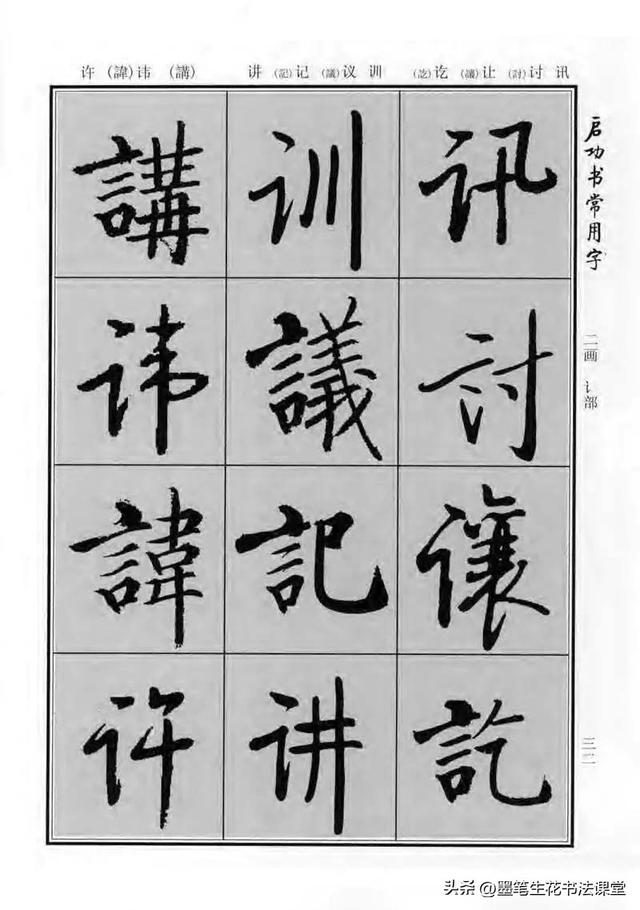 许 (諱)讳 (講) 讲 (記)记 (議)议 训 (訖)讫 (讓)让 (討)讨 讯
启功书常用字
二画 讠部
三二
讯
討
讓
訖
训
議
記
讲
講
讳
諱
许
头条 @墨笔生花书法课堂